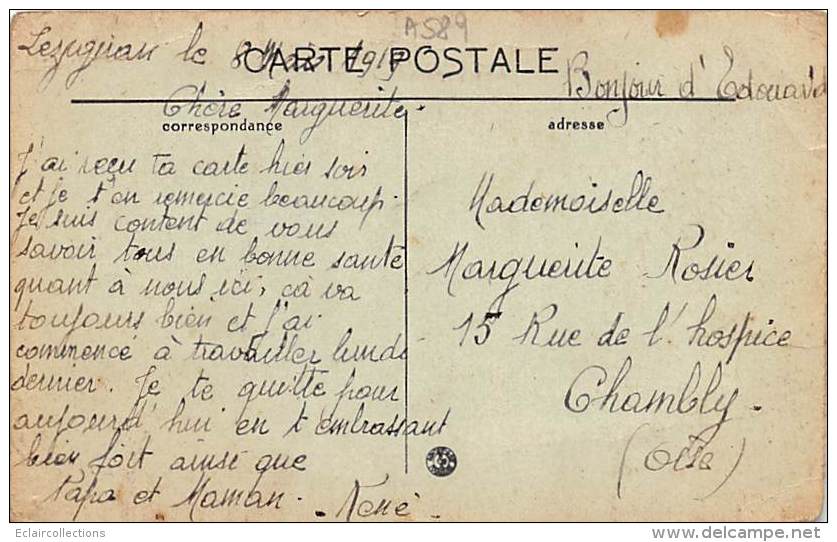 A589
Lezignan le 8 1915
CARTE POSTALE
Bonjour d'Edouard
Chère Marguerite.
correspondance
adresse
J'ai reçu ta carte hier soir
et je t'en remercie beaucoup.
Je suis content de vous
savoir tous en bonne santé
quant à nous ici, cà va
toujours bien et j'ai
commencé à travailler lundi
dernier. Je te quitte pour
aujourd'hui en t embrassant
bien fort ainsi que
Papa et Maman.
- René.
Mademoiselle
Marguerite Rosier
15 Rue de l'hospice
Chambly.
(Oise)
Eclaircollections
www.delcampe.net